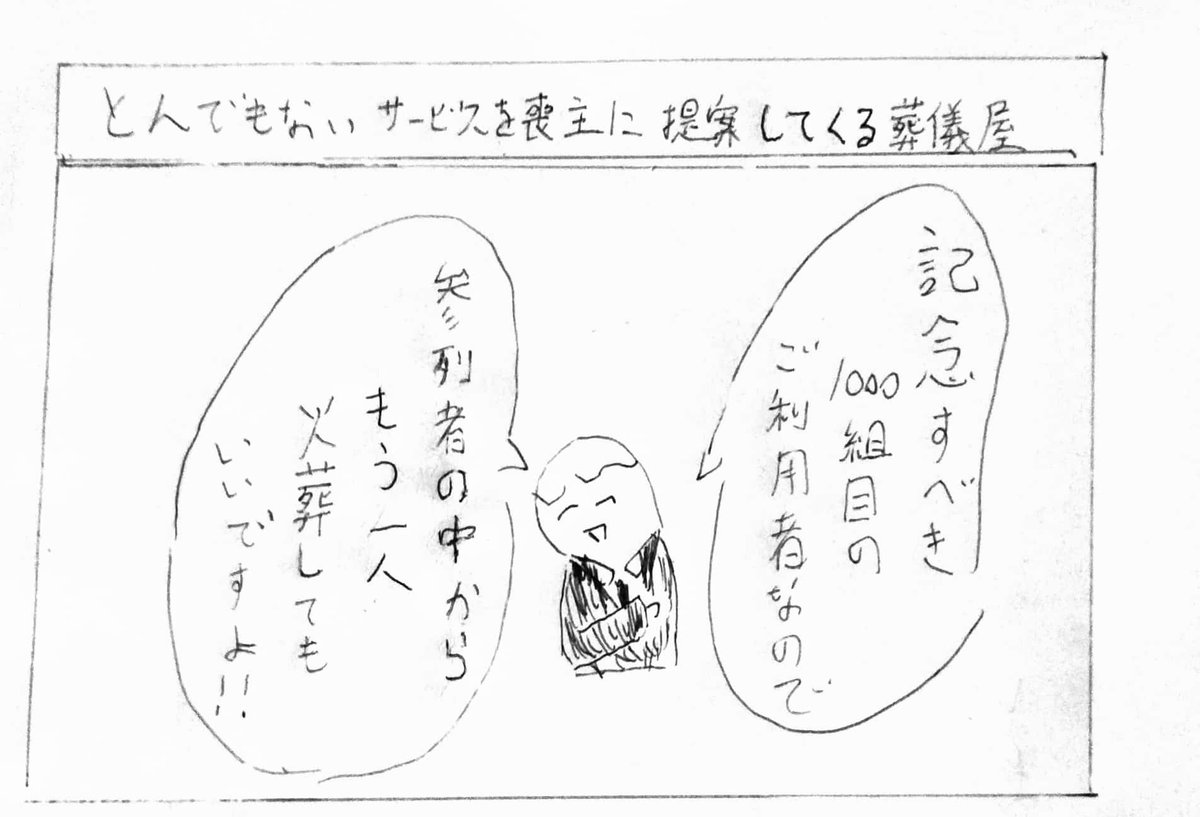 とんでもないサービスを喪主に提案してくる葬儀屋
記念すべき
1000組目の
ご利用者なので
参列者の中から
もう一人
火葬しても
いいですよ!!